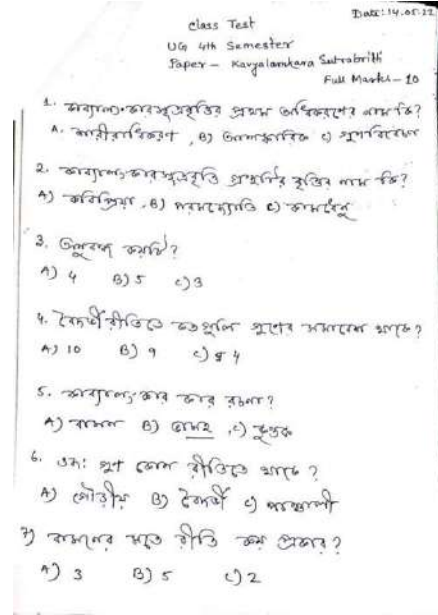 Date: 14.05.22
Class Test
UG 4th Semester
Paper - Kavyalamkara Sutrabritti
Full Marks - 10
1. কাব্যালংকারসূত্রবৃত্তির প্রথম অধিকরণের নাম কি?
A. শারীরাধিকরণ, B) আলঙ্কারিক C) গুণবিবেচন
2. কাব্যালংকারসূত্রবৃত্তি গ্রন্থটির বৃত্তির নাম কি?
A) কবিপ্রিয়া, B) পরমজ্যোতি C) কামধেনু
3. অনুবন্ধ কয়টি?
A) 4 B) 5 C) 3
4. বৈদর্ভী রীতিতে কতগুলি গুণের সমাবেশ থাকে?
A) 10 B) 9 C) 4
5. কাব্যালংকার কার রচনা?
A) বামন B) ভামহ, C) কুন্তক
6. ওজঃ গুণ কোন রীতিতে থাকে?
A) গৌড়ীয় B) বৈদর্ভী C) পাঞ্চালী
7) বামনের মতে রীতি কয় প্রকার?
A) 3 B) 5 C) 2